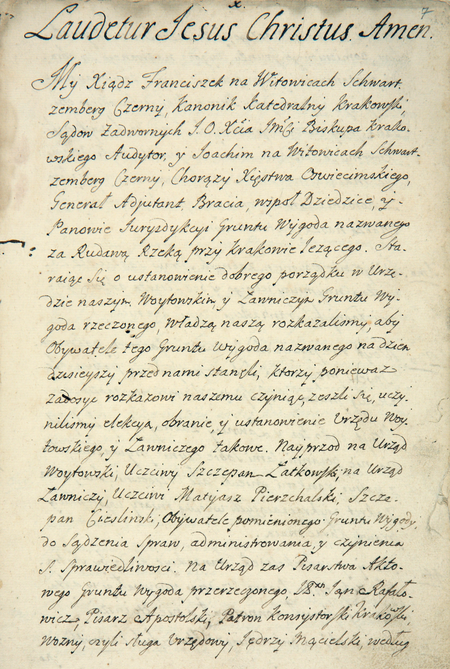 7
Laudetur Jesus Christus Amen.
My Xiądz Franciszek na Witowicach Schwart
zemberg Czerny, Kanonik Katedralny Krakowski
Sądow Zadwornych J. O. Xcia Jmci Biskupa Krako-
wskiego Audytor, y Joachim na Witowicach Schwart-
zemberg Czerny, Chorązy Xięstwa Oswiecimskiego,
Generał Adjutant Bracia, wspoł Dziedzice, y
Panowie Jurysdykcyi Gruntu Wygoda nazwanego
za Rudawą Rzeką przy Krakowie lezącego. Sta-
raiąc się o ustanowienie dobrego porządku w Urzę-
dzie naszym Woytowskim y Ławniczym Gruntu Wy-
goda rzeczonego, władzą naszą rozkazalismy, aby
Obywatele tego Gruntu Wygoda nazwanego na dzien
dzisieyszy przed nami stanęli, ktorzy poniewaz
zadosyc rozkazowi naszemu czyniąc, zeszli się, uczy-
nilismy elekcyą, obranie, y ustanowienie Urzędu Woy-
towskiego, y Ławniczego takowe. Nayprzod na Urząd
Woytowski, Uczciwy Szczepan Łatkowski, na Urząd
Ławniczy, Uczciwi Matyasz Pierzchalski, Szcze-
pan Cieslinski, Obywatele pomienionego Gruntu Wygody,
do Sądzenia Spraw, administrowania y czynienia
S. Sprawiedliwosci. Na Urząd zas Pisarstwa Akto-
wego Gruntu Wygoda przerzeczonego, Jan Rafało-
wicz, Pisarz Apostolski, Patron Konsystorski Krakowski
Wozny, czyli sługa Urzędowy, Jędrzy Mącielski, według